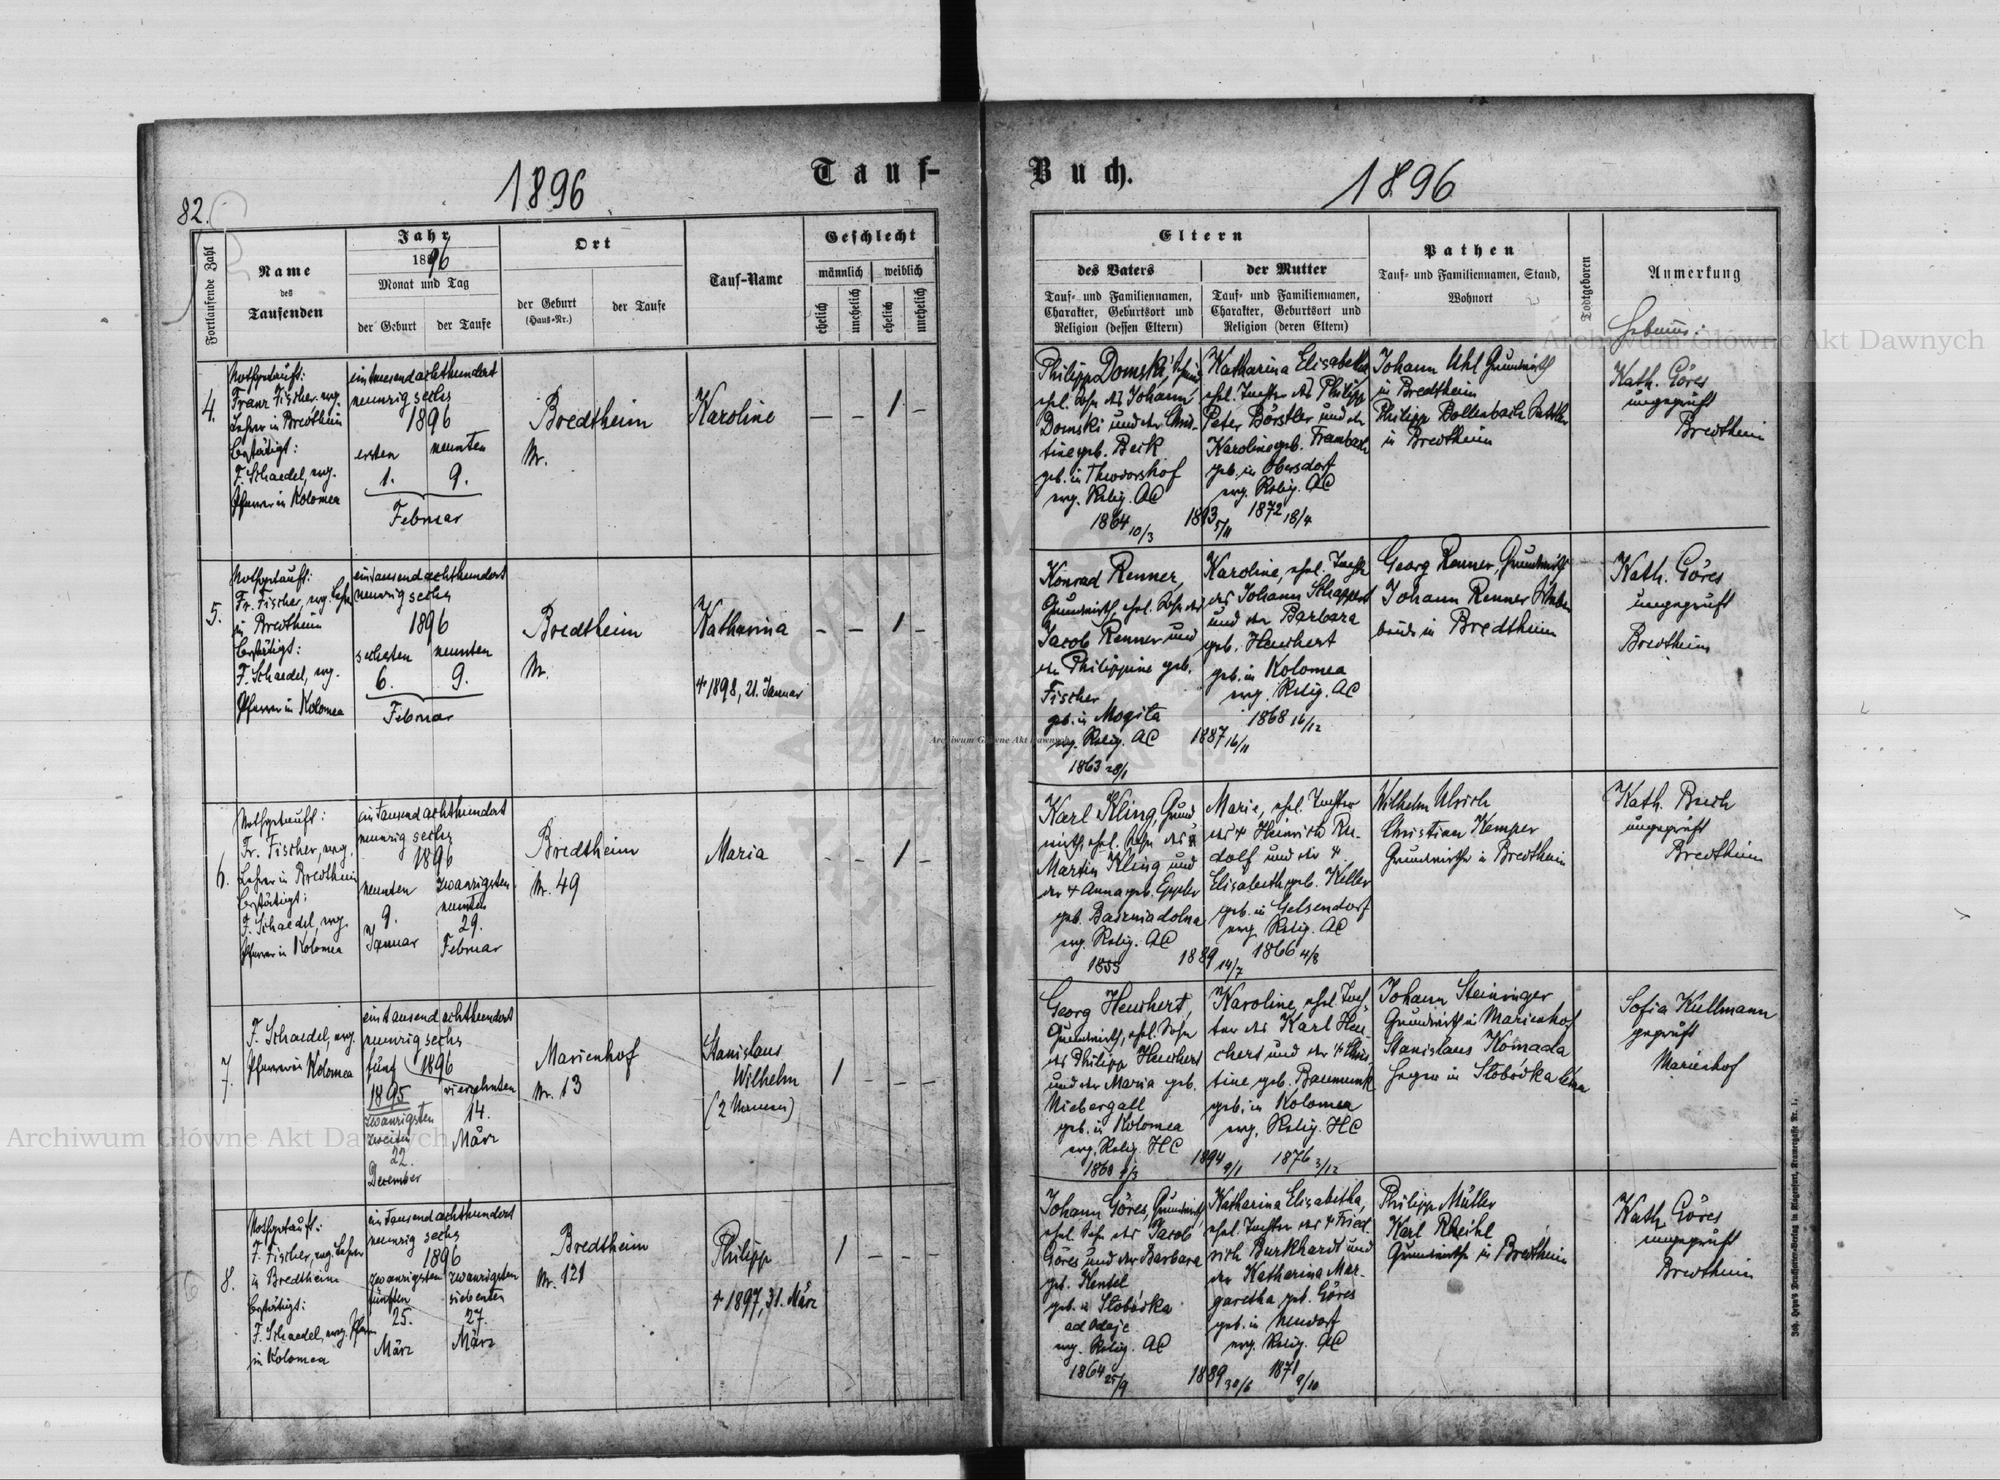 1896
Tauf-
82.
Fortlaufende Zahl
Name
des
Taufenden
Jahr
1896
Monat und Tag
der Geburt
der Taufe
Ort
der Geburt
(Haus-Nr.)
der Taufe
Tauf-Name
Geschlecht
männlich
weiblich
ehelich
unehelich
ehelich
unehelich
4.
Nothgetauft:
Franz Fischer, evg.
Lehrer in Bredtheim
bestätigt:
F. Schaedel, evg.
Pfarrer in Kolomea
eintausendachthundert
neunzig sechs
1896
ersten
neunten
1.
9.
Februar
Bredtheim
Nr.
Karoline
— — 1 —
5.
Nothgetauft:
Fr. Fischer, evg. Lehr
in Bredtheim
bestätigt:
F. Schaedel, evg.
Pfarrer in Kolomea
eintausendachthundert
neunzig sechs
1896
sechsten
neunten
6.
9.
Februar
Bredtheim
Nr.
Katharina
† 1898, 21. Januar
— — 1 —
6.
Nothgetauft:
Fr. Fischer, evg.
Lehrer in Bredtheim
bestätigt:
F. Schaedel, evg.
Pfarrer in Kolomea
ein tausend achthundert
neunzig sechs
1896
neunten
zwanzigsten
neunten
9.
29.
Januar
Februar
Bredtheim
Nr. 49
Maria
- - 1 -
7.
F. Schaedel, evg.
Pfarrer in Kolomea
eintausend achthundert
neunzig sechs
fünf
1896
1895
vierzehnten
zwanzigsten
zweiten
14.
22.
März
December
Marienhof
Nr. 13
Stanislaus
Wilhelm
(2 Namen)
1 - - -
8.
Nothgetauft:
F. Fischer, evg. Lehrer
in Bredtheim
bestätigt:
F. Schaedel, evg. Pfarr
in Kolomea
ein tausend achthundert
neunzig sechs
1896
zwanzigsten
zwanzigsten
fünften
siebenten
25.
27.
März
März
Bredtheim
Nr. 121
Philipp
† 1897, 31. März
1 - - -
Buch.
1896
Eltern
des Vaters
der Mutter
Tauf- und Familiennamen,
Charakter, Geburtsort und
Religion (dessen Eltern)
Tauf- und Familiennamen,
Charakter, Geburtsort und
Religion (deren Eltern)
Pathen
Tauf- und Familiennamen, Stand,
Wohnort
Todtgeboren
Anmerkung
Philipp Domski,
ehel. Sohn des Johann
Domski und der Chris-
tine geb. Beck
geb. in Theodorshof
evg. Relig. AC
1864 10/3
1893 5/11
Katharina Elisabetha
ehel. Tochter des Philipp
Peter Börstler und der
Karoline geb. Frambach
geb. in Obersdorf
evg. Relig. AC
1872 18/4
Johann Uhl Grundwirth
in Bredtheim
Philipp Bollenbach
in Bredtheim
Kath. Göres
ungeprüft
Bredtheim
Konrad Renner,
Grundwirth, ehel. Sohn des
Jacob Renner und
der Philippine geb.
Fischer
geb. in Mogila
evg. Relig. AC
1863 28/1
1887 16/11
Karoline, ehel. Tochter
des Johann Schappert
und der Barbara
geb. Heuchert
geb. in Kolomea
evg. Relig. AC
1868 16/12
Georg Renner, Grundwirth
Johann Renner
beide in Bredtheim
Kath. Göres
ungeprüft
Bredtheim
Karl Kling, Grund
wirth, ehel. Sohn des †
Martin Kling und
der † Anna geb. Eppler
geb. Baginiadolna
evg. Relig. AC
1855
1889 14/7
Marie, ehel. Tochter
des † Heinrich Ru-
dolf und der †
Elisabeth geb. Keller
geb. in Gelsendorf
evg. Relig. AC
1866 4/8
Wilhelm Ulrich
Christian Kemper
Grundwirthe in Bredtheim
Kath. Busch
ungeprüft
Bredtheim
Georg Heuchert,
Grundwirth, ehel. Sohn
des Philipp Heuchert
und der Maria geb.
Niebergall
geb. in Kolomea
evg. Relig. HC
1894 9/1
Karoline, ehel. Toch-
ter des Karl Heu-
chert und der † Chris
tine geb. Baumunk
geb. in Kolomea
evg. Relig. HC
1876 3/12
Johann Steininger
Grundwirth in Marienhof
Stanislaus Komada
Heger in Słobódka
Sofia Kullmann
geprüft
Marienhof
Johann Göres, Grundwirth
ehel. Sohn des Jacob
Göres und der Barbara
geb. Hentel
geb. in Słobódka
ad Odaje
evg. Relig. AC
1864 25/9
1889 30/6
Katharina Elisabetha,
ehel. Tochter des † Fried
rich Burkhardt und
der Katharina Mar-
garetha geb. Göres
geb. in Neudorf
evg. Relig. AC
1871 9/10
Philipp Müller
Karl Rheihl
Grundwirthe in Bredtheim
Kath. Göres
ungeprüft
Bredtheim
Archiwum Główne Akt Dawnych
Archiwum Główne Akt Dawnych
Archiwum Główne Akt Dawnych